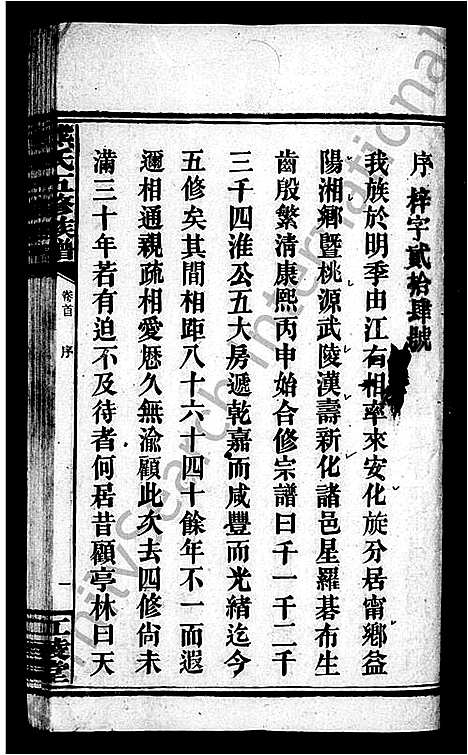 序 梓字貳拾肆號
我族於明季由江右相率來安化旋分居甯鄉益
陽湘鄉曁桃源武陵漢壽新化諸邑星羅碁布生
齒殷繁清康熙丙申始合修宗譜曰千一千二千
三千四淮公五大房遞乾嘉而咸豐而光緒迄今
五修矣其間相距八十六十四十餘年不一而遐
邇相通親疏相愛歷久無渝顧此次去四修尙未
滿三十年若有迫不及待者何居昔顧亭林曰天
氏五修族譜
卷首 序
一
堂
FamilySearch International